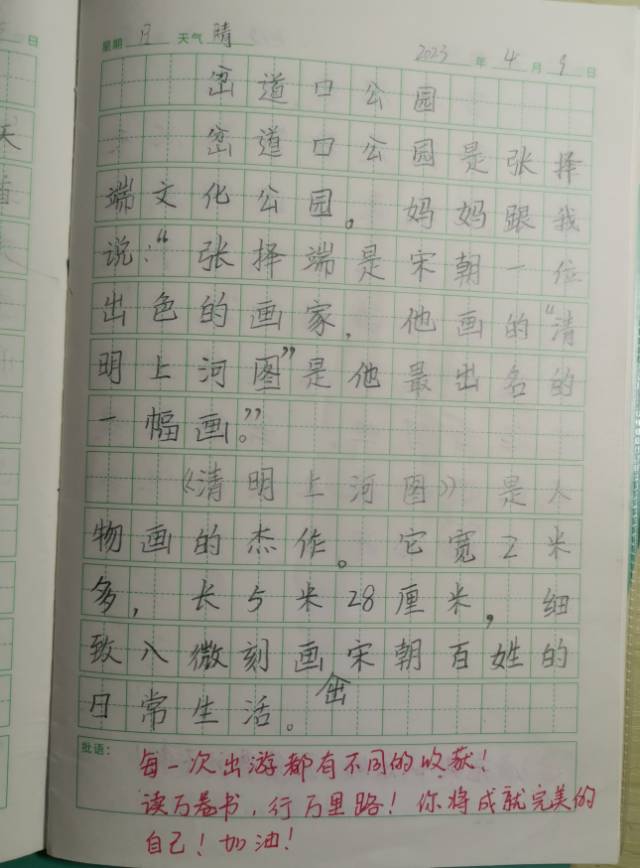 日
星期 日 天气 晴
2023 年 4 月 9 日
岔道口公园
岔道口公园是张择
端文化公园。妈妈跟我
说:“张择端是宋朝一位
出色的画家,他画的“清
明上河图”是他最出名的
一幅画。”
《清明上河图》是人
物画的杰作。它宽2米
多,长5米28厘米,细
致入微刻画宋朝百姓的
日常生活。
批语:
每一次出游都有不同的收获!
读万卷书,行万里路!你将成就完美的
自己!加油!